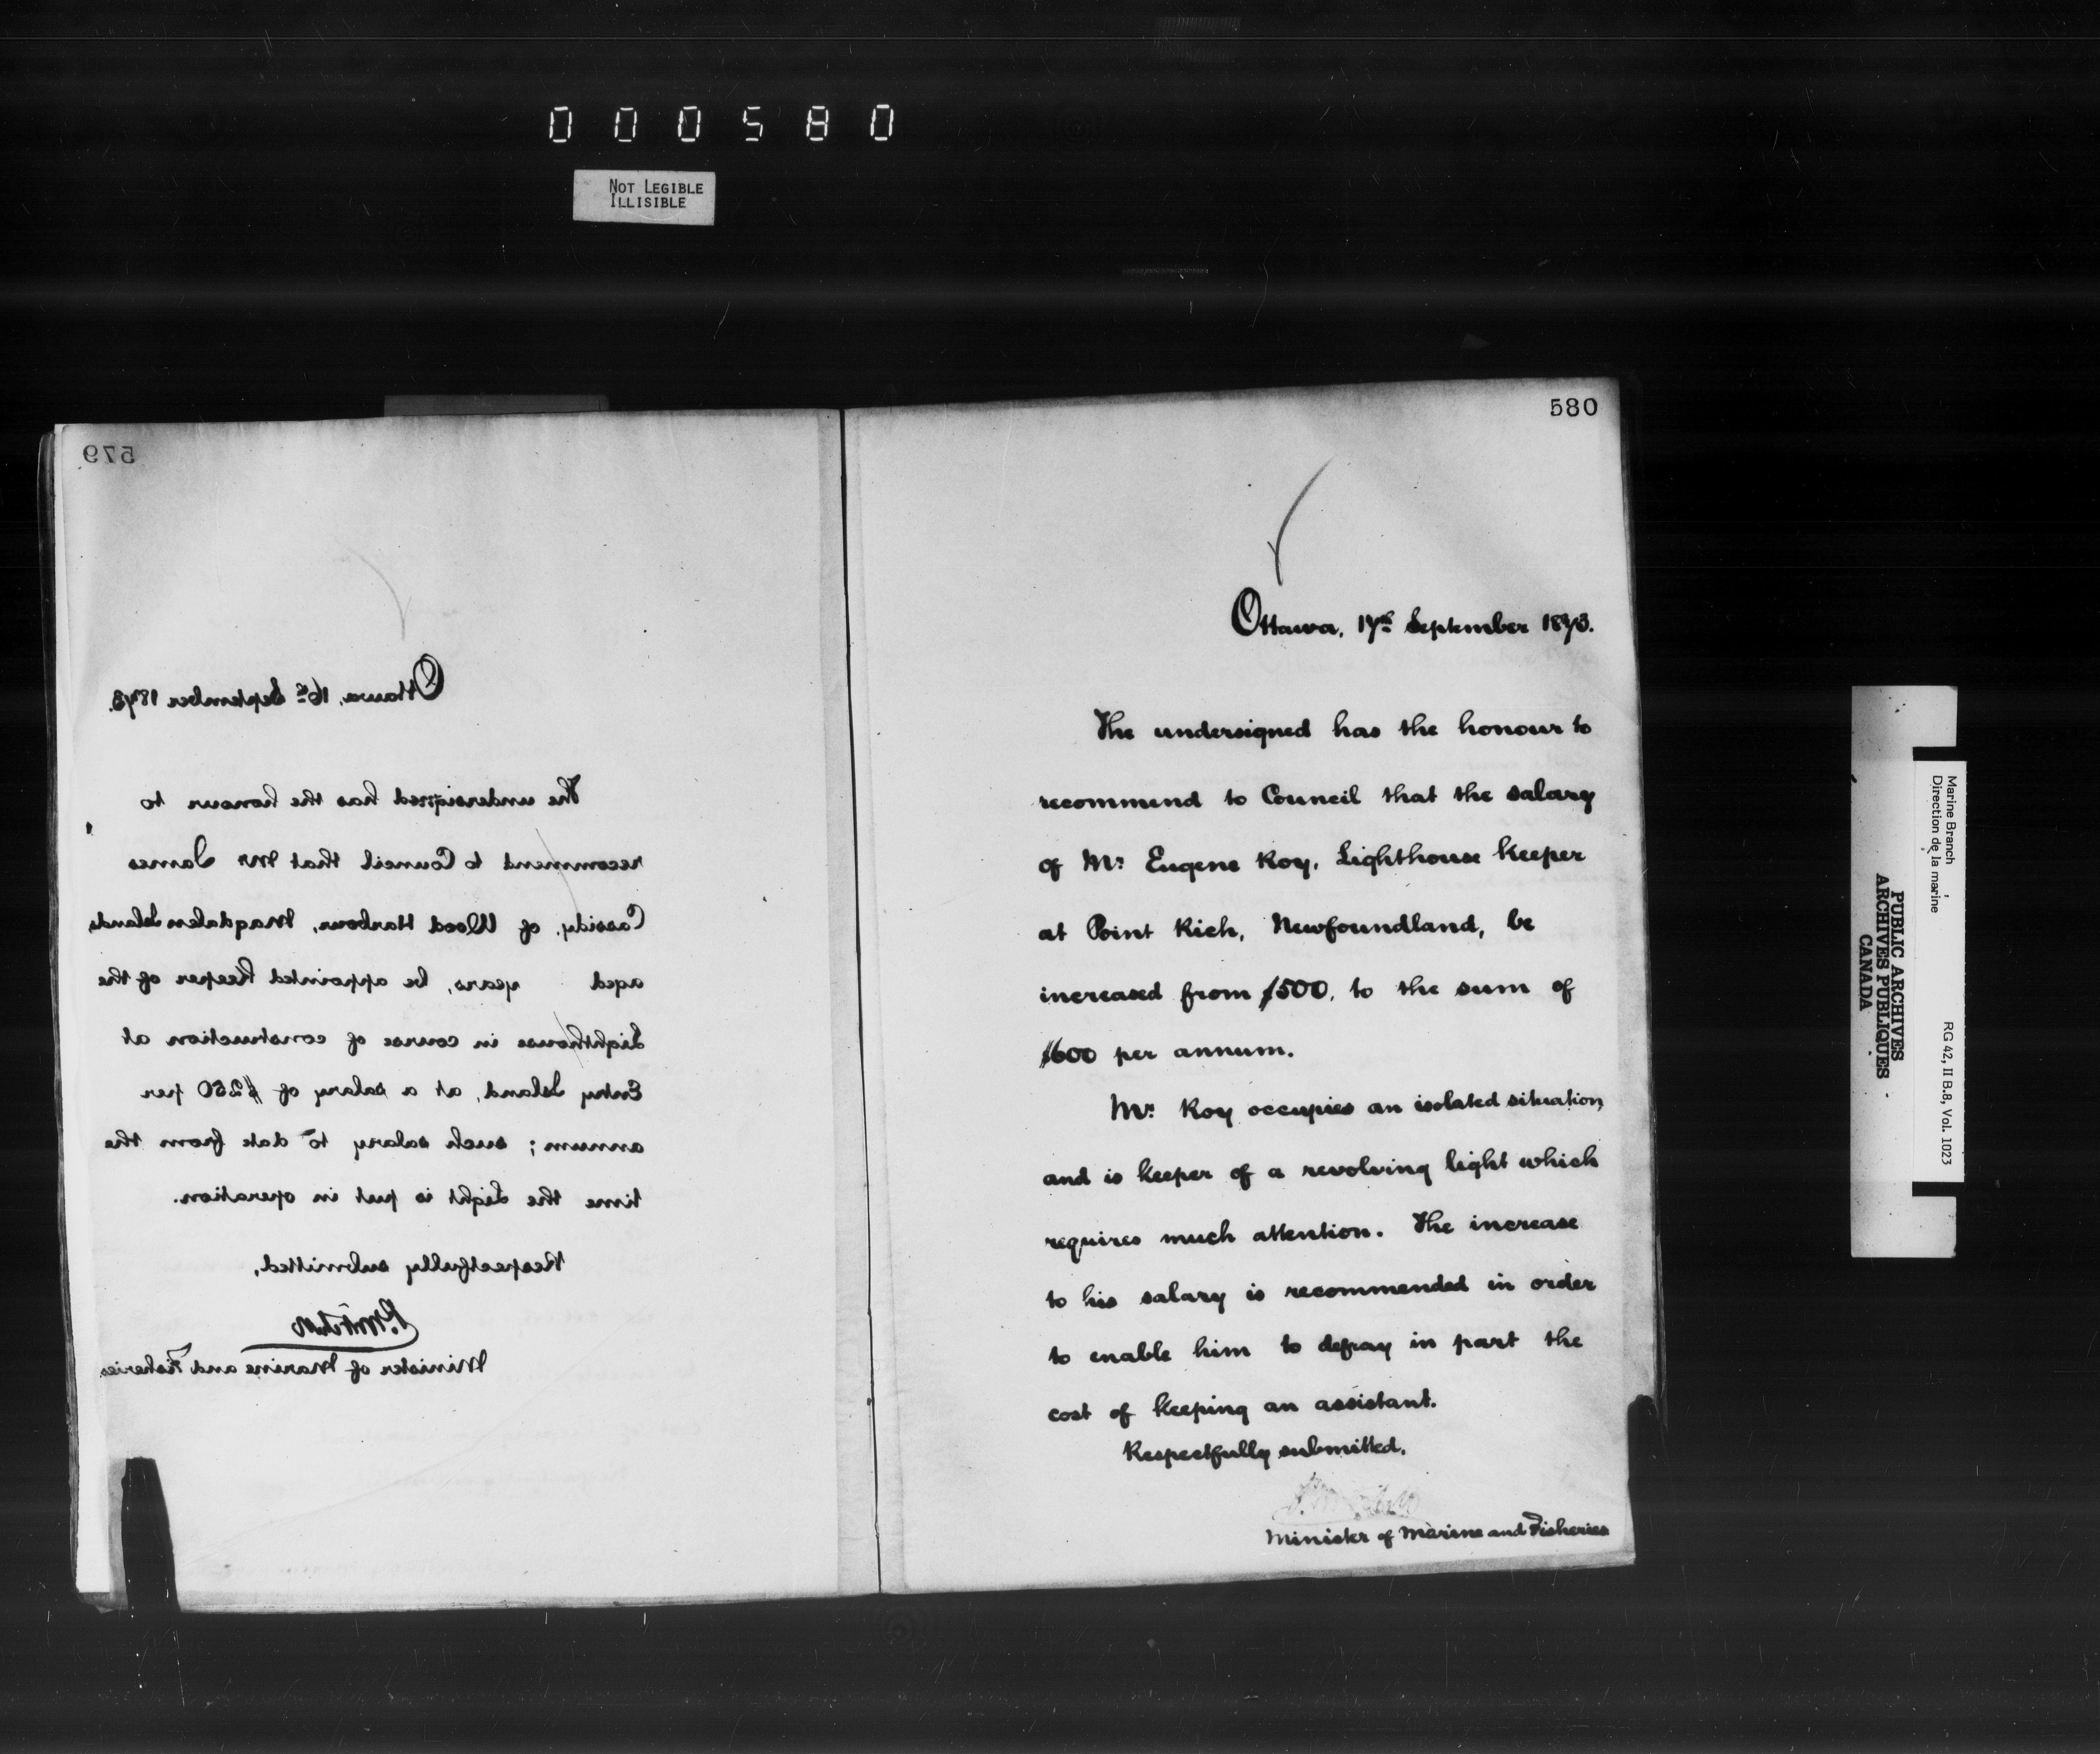 000580
NOT LEGIBLE
ILLISIBLE
579
Ottawa, 16th September 1873.
The undersigned has the honour to
recommend to Council that Mr James
Cassidy, of Wood Harbour, Magdalen Islands,
aged years, be appointed Keeper of the
Lighthouse in course of construction at
Entry Island, at a salary of $250 per
annum; such salary to date from the
time the Light is put in operation.
Respectfully submitted,
P. Mitchell
Minister of Marine and Fisheries
580
Ottawa, 17th September 1873.
The undersigned has the honour to
recommend to Council that the salary
of Mr. Eugene Roy, Lighthouse Keeper
at Point Rich, Newfoundland, be
increased from $500, to the sum of
$600 per annum.
Mr. Roy occupies an isolated situation,
and is keeper of a revolving light which
requires much attention. The increase
to his salary is recommended in order
to enable him to defray in part the
cost of keeping an assistant.
Respectfully submitted,
P. Mitchell
Minister of Marine and Fisheries
Marine Branch
Direction de la marine
RG 42, II B.8, Vol. 1023
PUBLIC ARCHIVES
ARCHIVES PUBLIQUES
CANADA